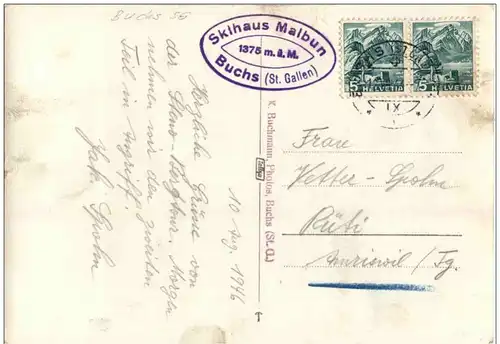 Buchs SG
Skihaus Malbun
1375 m.ü.M.
Buchs (St. Gallen)
5 HELVETIA
5 HELVETIA
IX
10 Aug. 1946
Herzliche Grüsse von
der
nehmen wir den zweiten
Teil in Angriff.
Jak. Spohn
K. Buchmann, Photos, Buchs (St. G.)
Frau
Vetter-Spohn
Rüti
Amriswil / Tg.